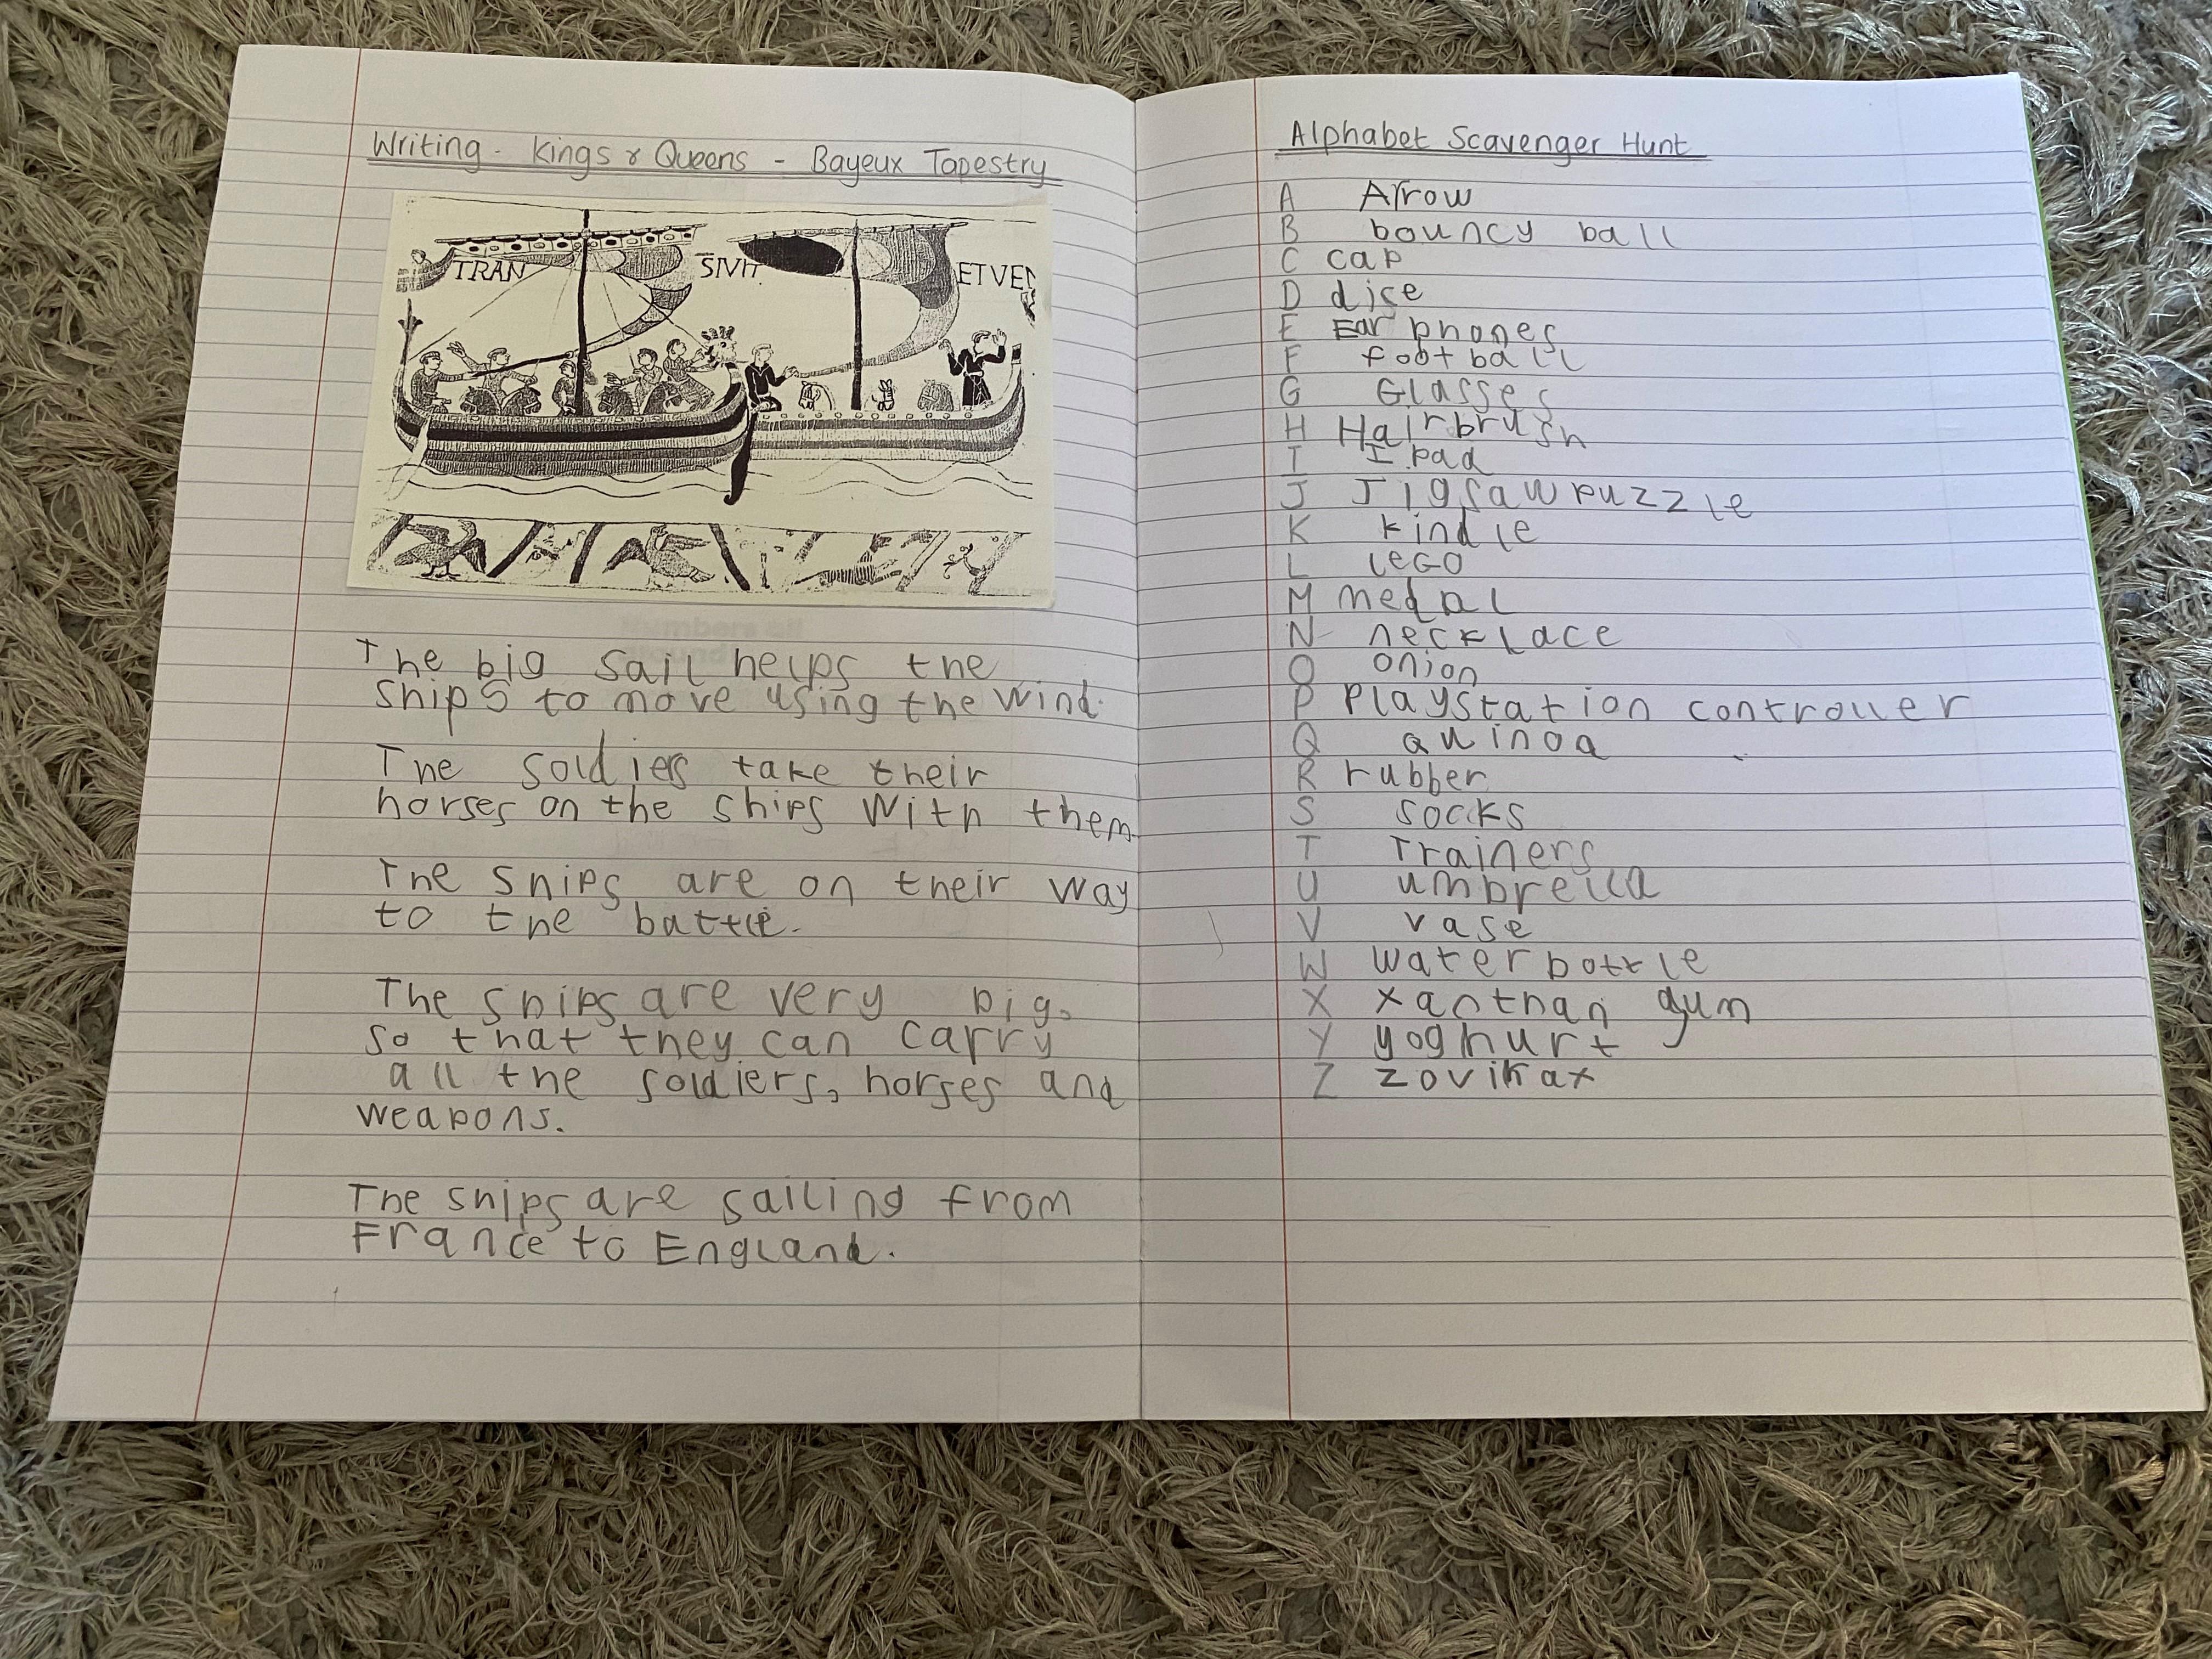 Writing - Kings & Queens - Bayeux Tapestry
TRAN SIVIT ET VEN
The big sail helps the
ships to move using the wind.
The soldiers take their
horses on the ships with them
The ships are on their way
to the battle.
The ships are very big,
so that they can carry
all the soldiers, horses and
weapons.
The ships are sailing from
France to England.
Alphabet Scavenger Hunt
A Arrow
B bouncy ball
C cap
D dice
E Ear phones
F foot ball
G Glasses
H Hairbrush
I I pad
J Jigsaw puzzle
K kindle
L LEGO
M medal
N necklace
O onion
P Playstation controller
Q quinoa
R rubber
S socks
T Trainers
U umbrella
V vase
W water bottle
X xanthan gum
Y yoghurt
Z zovirax